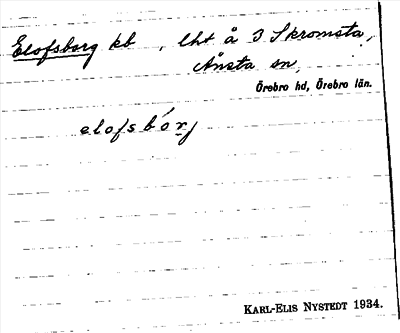 Elofsborg kb , lht å 3 Skromsta,
Ånsta sn,
Örebro hd, Örebro län.
elofsbórj
KARL-ELIS NYSTEDT 1934.